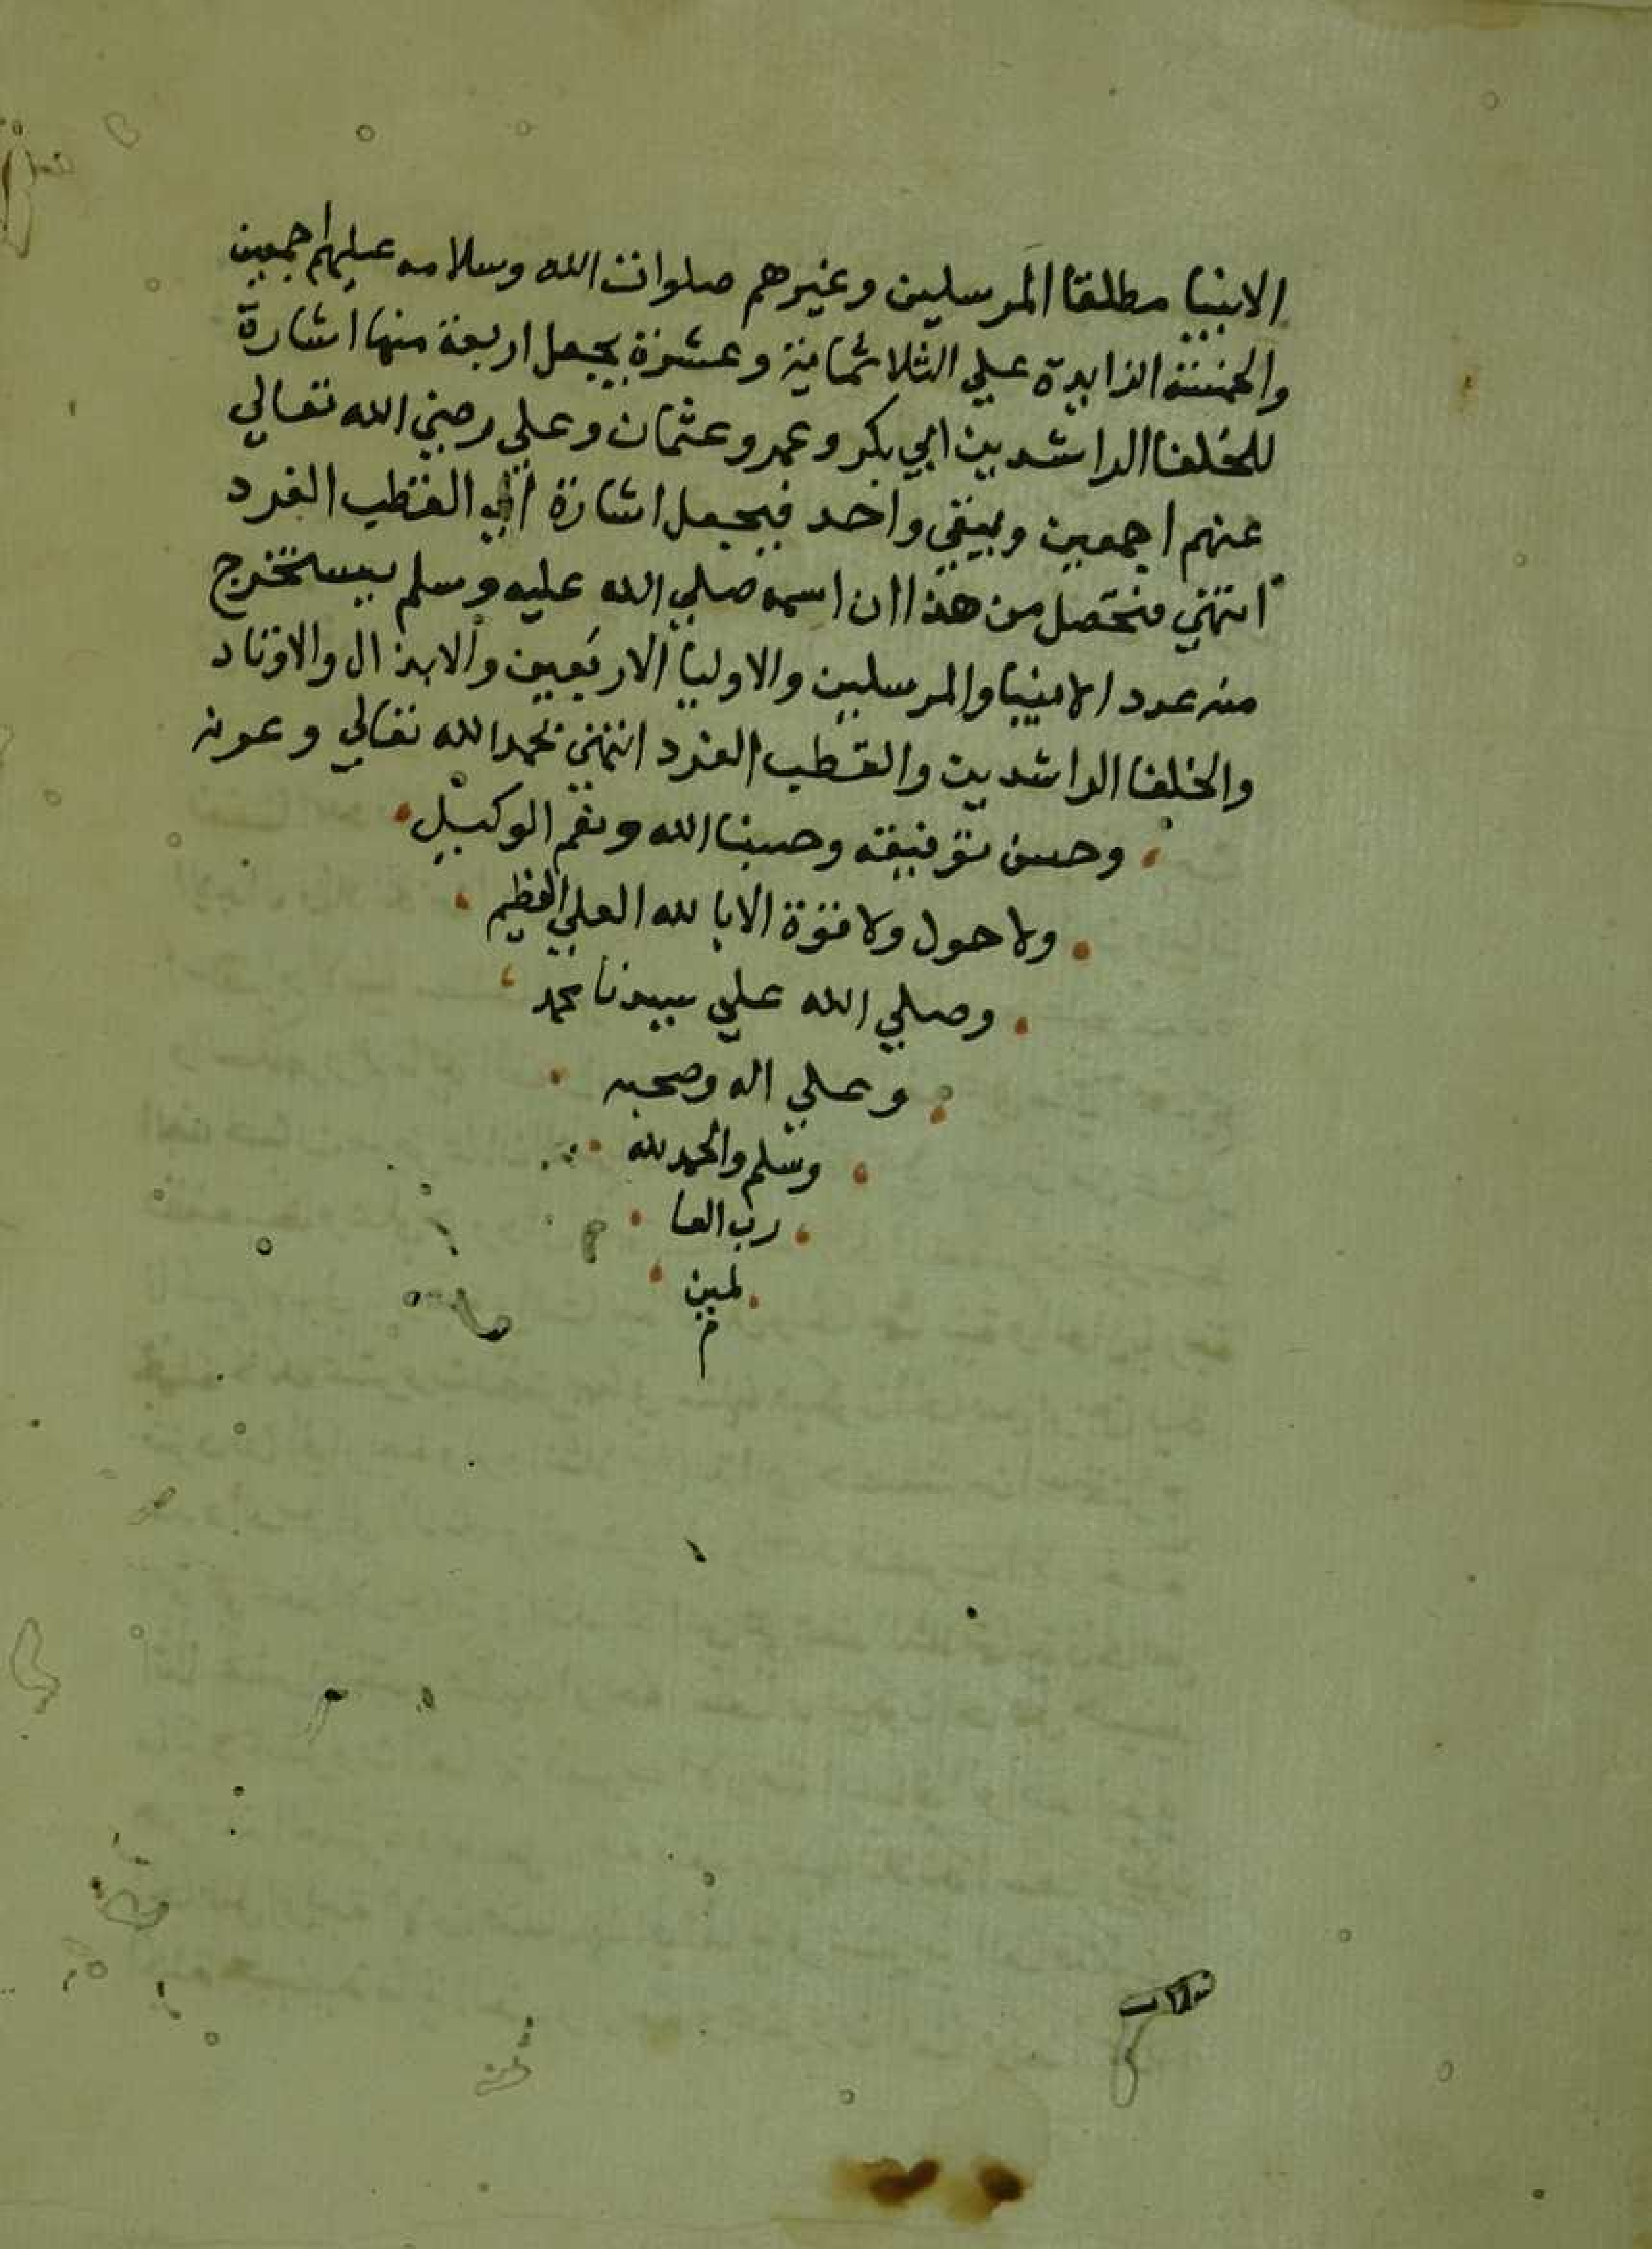 الانبيا مطلقا المرسلين وغيرهم صلوات الله وسلامه عليهم اجمعين
والخمسة الزايدة علي الثلاثماية وعشرة يجعل اربعة منها اشارة
للخلفا الراشدين ابي بكر وعمر وعثمان وعلي رضي الله تعالي
عنهم اجمعين ويبقي واحد فيجعل اشارة الي القطب الفرد
انتهي فتحصل من هذا ان اسمه صلي الله عليه وسلم يستخرج
منه عدد الانبيا والمرسلين والاوليا الاربعين والابدال والاوتاد
والخلفا الراشدين والقطب الفرد انتهي بحمد الله تعالي وعونه
وحسن توفيقه وحسبنا الله ونعم الوكيل
ولا حول ولا قوة الا بالله العلي العظيم
وصلي الله علي سيدنا محمد
وعلي اله وصحبه
وسلم والحمد لله
رب العا
لمين
م